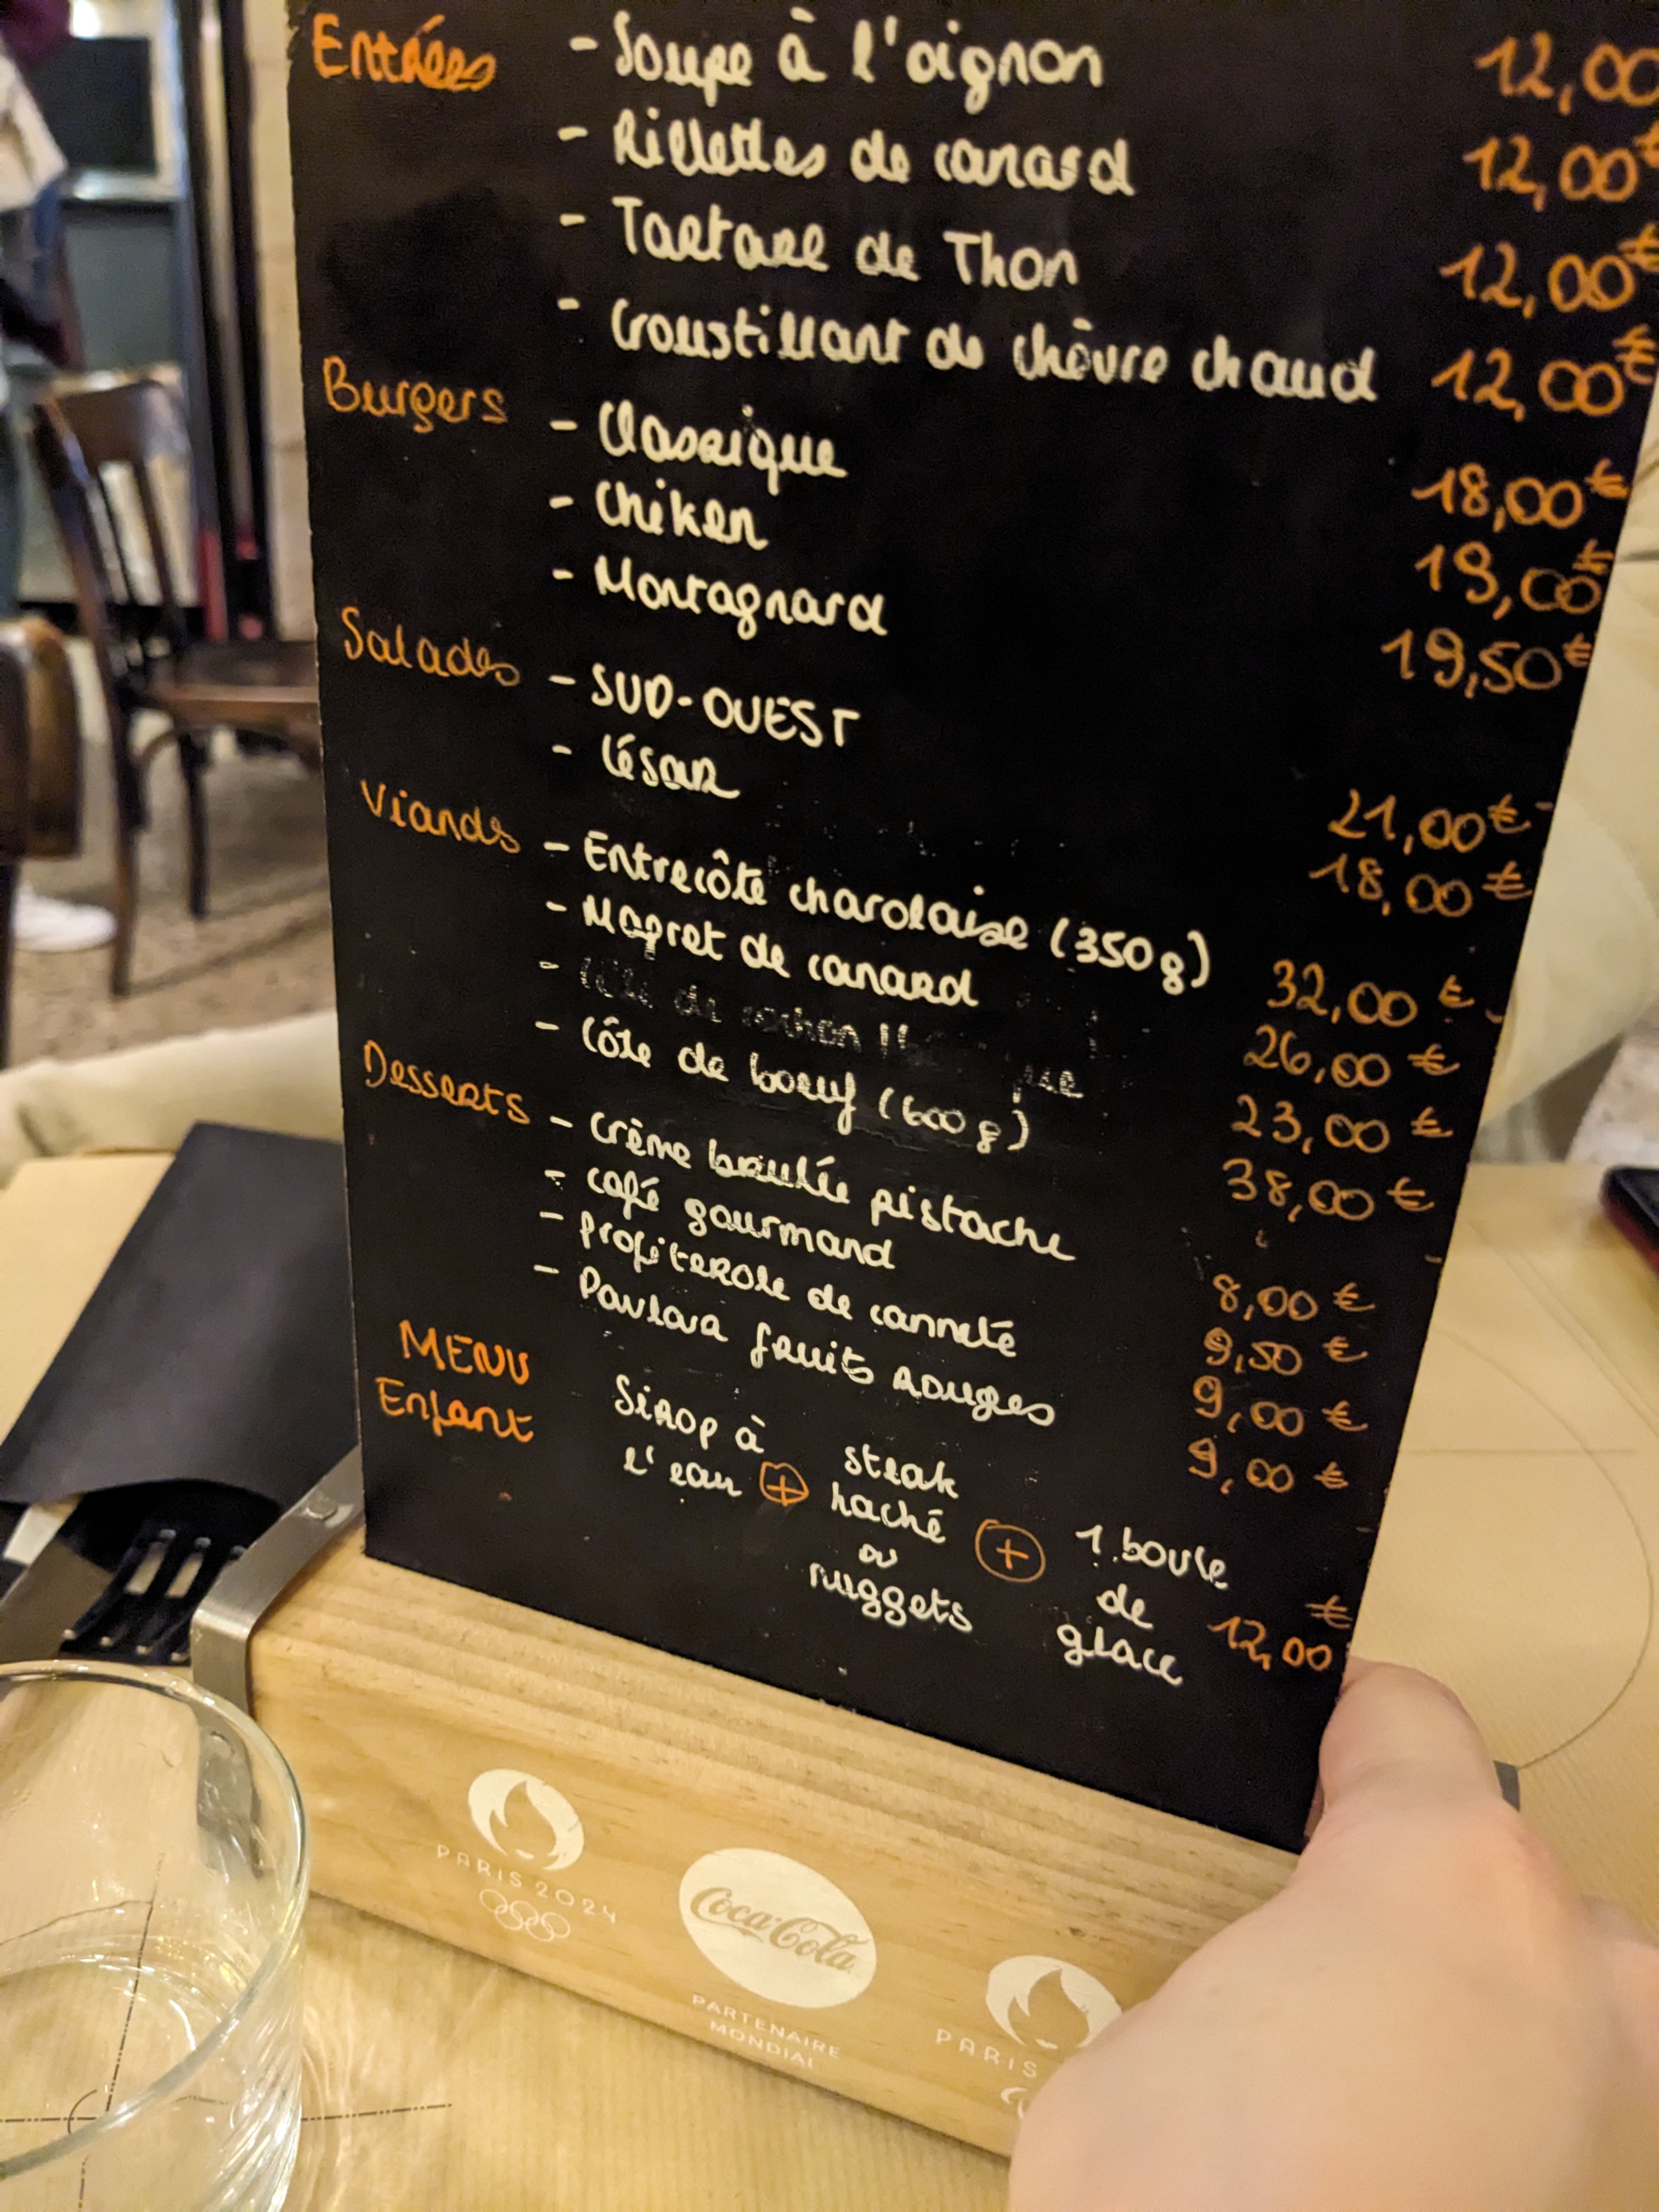 Entrées - Soupe à l'oignon 12,00
- Rillettes de canard 12,00€
- Tartare de Thon 12,00€
- Croustillant de chèvre chaud 12,00€
Burgers - Classique 18,00€
- Chiken 19,00€
- Montagnard 19,50€
Salades - SUD-OUEST 21,00€
- César 18,00€
Viands - Entrecôte charolaise (350g) 32,00€
- Magret de canard 26,00€
- de cochon 23,00€
- Côte de boeuf (600g) 38,00€
Desserts - Crème brulée pistache 8,00€
- café gourmand 9,50€
- profiterole de canneté 9,00€
- Pavlova fruits rouges 9,00€
MENU
Enfant
Sirop à
l'eau
+
steak
haché
ou
nuggets
+
1 boule
de
glace
12,00€
PARIS 2024
Coca-Cola
PARTENAIRE
MONDIAL
PARIS